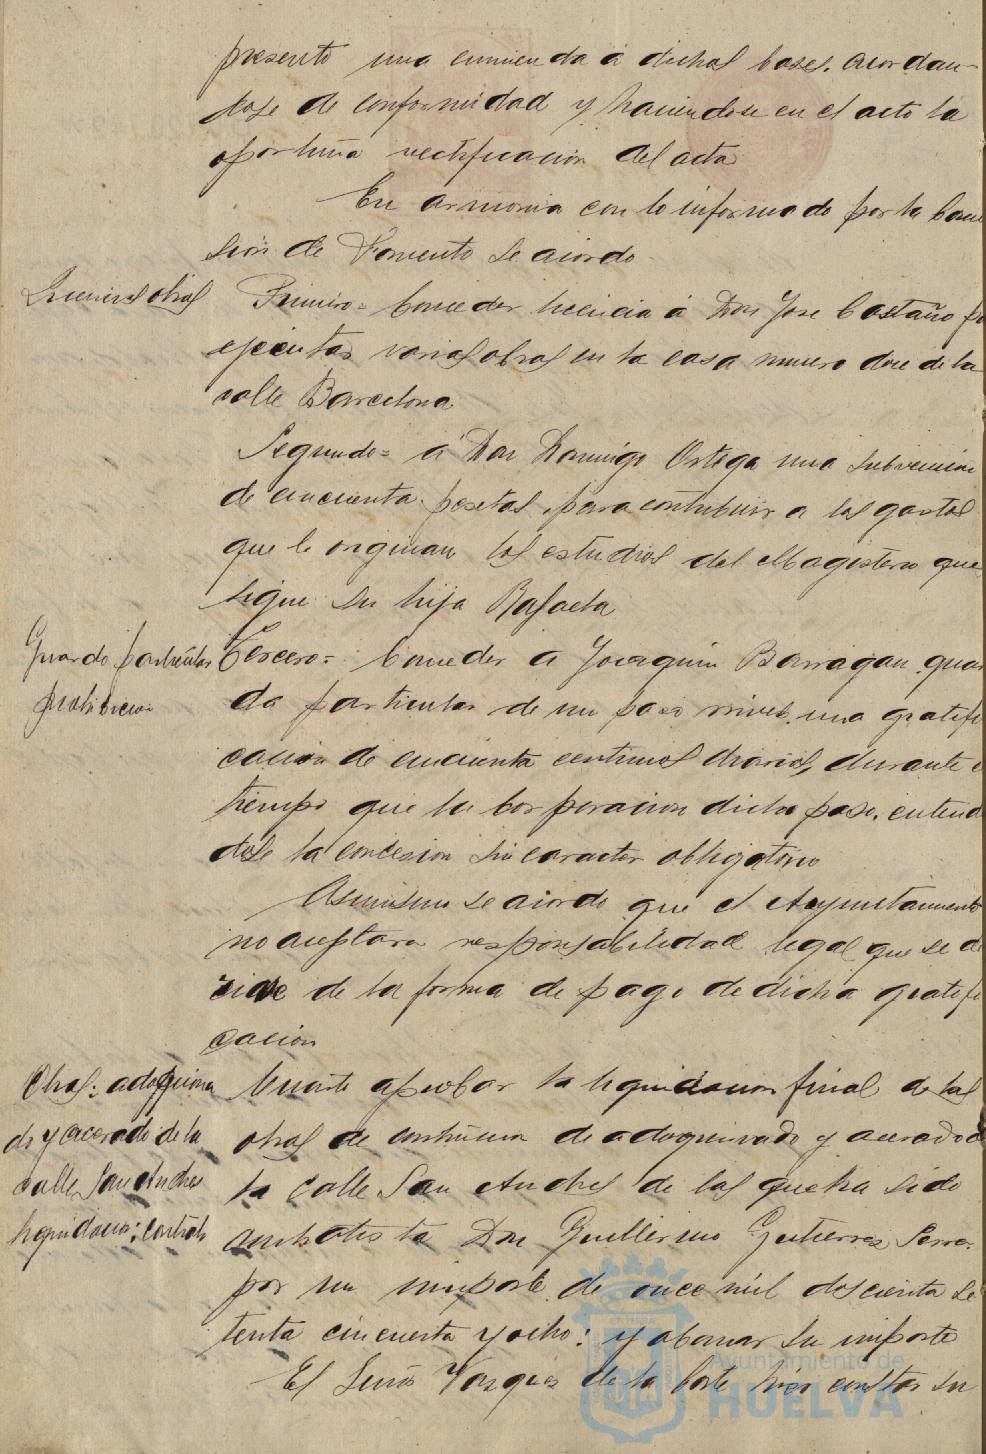 presento una enmienda á dichas bases, acordan-
dose de conformidad y haciendose en el acto la
oportuna rectificación del acta
En armonia con lo informado por la Comi
sion de Fomento se acordo
Licencias obras
Primero = Conceder licencia á Don Jose Castaño pa
ejecutar varias obras en la casa numero doce de la
calle Barcelona
Segundo = á Don Domingo Ortega una subvención
de cincuenta pesetas para contribuir a los gastos
que le originan los estudios del Magisterio que
sigue su hija Rafaela
Guarda particular
Tercero = Conceder a Joaquin Barragan guar
da particular de un paso nivel, una gratifi
cacion de cincuenta centimos diarios, durante e
tiempo que la Corporacion dicho paso, entend
dose la concesion sin caracter obligatorio
Asimismo se acordo que el Ayuntamiento
no aceptara responsabilidad legal que se de
rive de la forma de pago de dicha gratifi
cacion
Obras: adoquina
do y acerado de la
calle San Andres
liquidacion: contrata
Cuarto aprobar la liquidacion final de las
obras de construccion de adoquinado y acerado de
la calle San Andres de las que ha sido
contratista Don Guillermo Gutierrez Serra
por un importe de once mil doscienta se
tenta cincuenta y ocho: y abonar su importe
El Señor Vazquez de la Corte hizo constar su
Ayuntamiento de
HUELVA